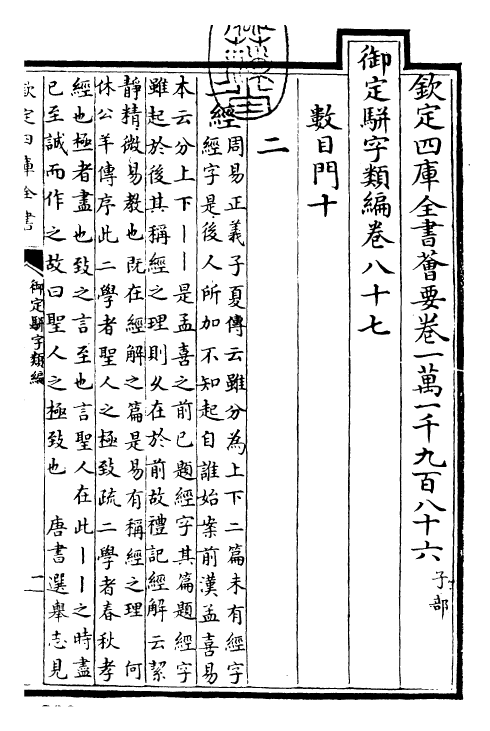 欽定四庫全書薈要卷一萬一千九百八十六 子部
御定駢字類編卷八十七
數目門十
二
二經 周易正義子夏傳云雖分為上下二篇未有經字
經字是後人所加不知起自誰始案前漢孟喜易
本云分上下丨丨是孟喜之前已題經字其篇題經字
雖起於後其稱經之理則久在於前故禮記經解云絜
靜精微易教也既在經解之篇是易有稱經之理 何
休公羊傳序此二學者聖人之極致疏二學者春秋孝
經也極者盡也致之言至也言聖人在此丨丨之時盡
已至誠而作之故曰聖人之極致也 唐書選舉志見
欽定四庫全書
御定駢字類編
一